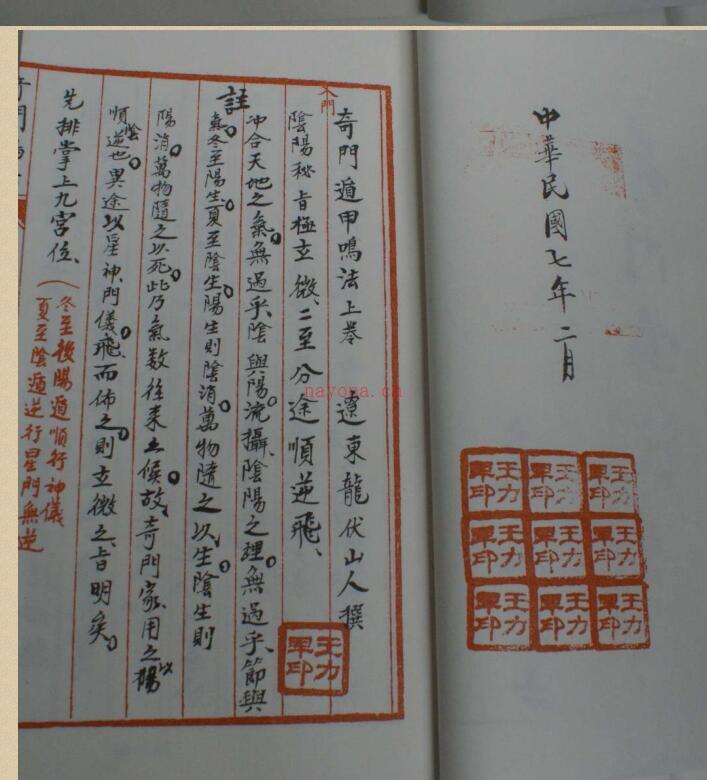 中華民國七年二月
王力軍印
王力軍印
王力軍印
王力軍印
王力軍印
王力軍印
王力軍印
王力軍印
王力軍印
入門
奇門遁甲鳴法上卷 遼東龍伏山人撰
陰陽秘旨極玄微、二至分途順逆飛、
註
冲合天地之氣。無過乎、陰與陽流。攝、陰陽之理。無過乎、節與
氣。冬至陽生。夏至陰生。陽生則陰消。萬物隨之以、生。陰生則
陽消。萬物隨之以死。此乃氣数往来之候。故、奇門家。用之以陽
順陰逆也。異途以星神、門儀。飛而佈之。則玄微之、旨明矣。
先排掌上九宮位、
(冬至後陽遁順行神儀
夏至陰遁逆行星門無逆
奇門
王力軍印
nayona.cn